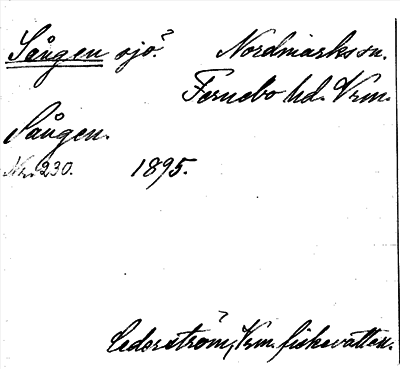 Sången sjö? Nordmarks sn.
Fernebo hd. Vrm.
Sången.
Nr. 230. 1895.
Cederström, Vrm. fiskevatten.